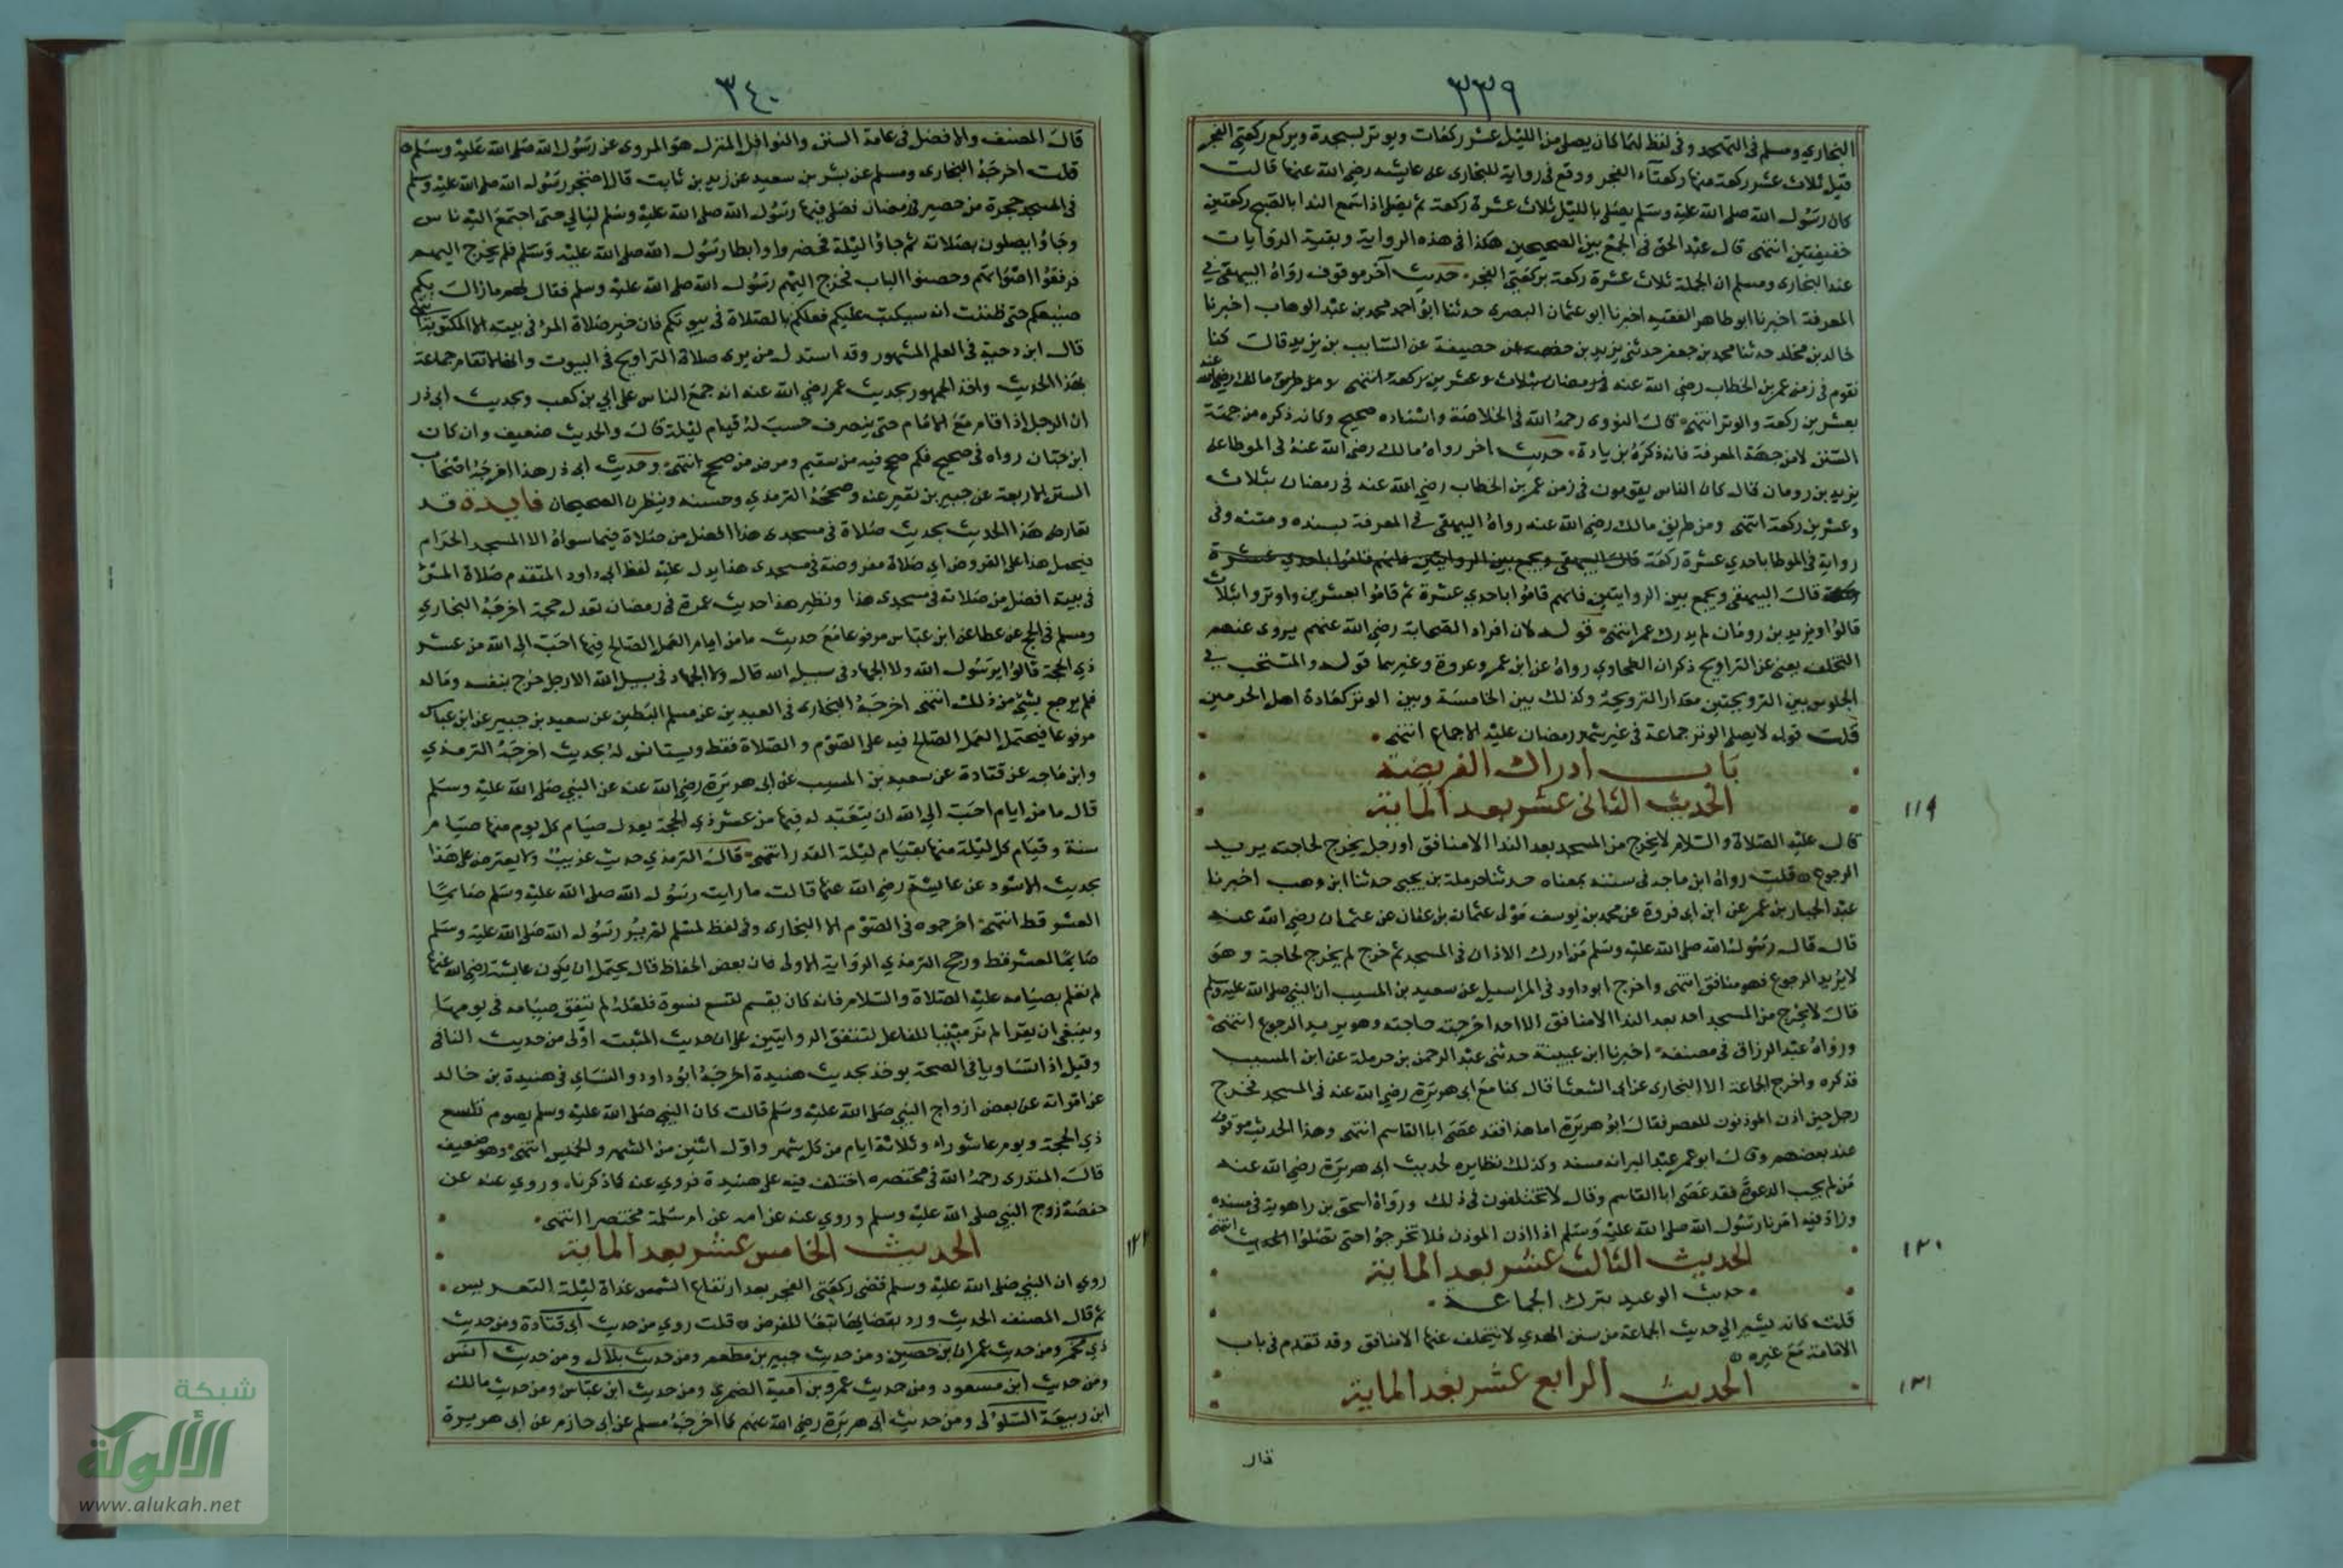 ٣٣٩
البخاري ومسلم في التهجد وفي لفظ لهما كان يصلي من الليل عشر ركعات ويوتر بسجدة ويركع ركعتي الفجر
فتلك ثلاث عشر ركعة منها ركعتا الفجر ووقع في رواية للبخاري عن عايشه رضي الله عنها قالت
كان رسول الله صلى الله عليه وسلم يصلي بالليل ثلاث عشرة ركعة ثم يصلي اذا سمع الندا بالصبح ركعتين
خفيفتين انتهى قال عبد الحق في الجمع بين الصحيحين هكذا في هذه الرواية وبقية الروايات
عند البخاري ومسلم ان الجملة ثلاث عشرة ركعة بركعتي الفجر حديث آخر موقوف رواه البيهقي في
المعرفة اخبرنا ابو طاهر الفقيه اخبرنا ابو عثمان البصري حدثنا ابو احمد محمد بن عبد الوهاب اخبرنا
خالد بن مخلد حدثنا محمد بن جعفر حدثني يزيد بن خصيفة عن السايب بن يزيد قال كنا
نقوم في زمن عمر بن الخطاب رضي الله عنه في رمضان بثلاث وعشرين ركعة انتهى ومن طريق مالك رضي الله عنه
بعشرين ركعة والوتر انتهى قال النووي رحمه الله في الخلاصة واسناده صحيح وكانه ذكره من جهة
السنن لا من جهة المعرفة فانه ذكره بزيادة حديث اخر رواه مالك رضي الله عنه في الموطا عن
يزيد بن رومان قال كان الناس يقومون في زمن عمر بن الخطاب رضي الله عنه في رمضان بثلاث
وعشرين ركعة انتهى ومن طريق مالك رضي الله عنه رواه البيهقي في المعرفة بسنده ومتنه وفي
رواية في الموطا باحدي عشرة ركعة قال البيهقي ويجمع بين الروايتين فانهم قاموا باحدي عشرة
ركعة قال البيهقي ويجمع بين الروايتين فانهم قاموا باحدي عشرة ثم قاموا بعشرين واوتروا بثلاث
قالوا ويزيد بن رومان لم يدرك عمر انتهى قوله لان افراد الصحابة رضي الله عنهم يروى عنهم
التخلف يعني عن التراويح ذكران الطحاوي رواه عن ابن عمر وعروة وغيرهما قوله والمستحب في
الجلوس بين الترويحتين مقدار الترويحة وكذلك بين الخامسة وبين الوتر كعادة اهل الحرمين
قلت قوله لا يصلي الوتر جماعة في غير شهر رمضان عليه الاجماع انتهى
باب ادراك الفريضة
الحديث الثاني عشر بعد الماية
١١٩
قال عليه الصلاة والسلام لا يخرج من المسجد بعد الندا الا منافق او رجل يخرج لحاجته يريد
الرجوع قلت رواه ابن ماجه في سننه بمعناه حدثنا حرملة بن يحيى حدثنا ابن وهب اخبرنا
عبد الجبار بن عمر عن ابن ابي فروة عن محمد بن يوسف مولى عثمان بن عفان عن عثمان رضي الله عنه
قال قال رسول الله صلى الله عليه وسلم من ادرك الاذان في المسجد ثم خرج لم يخرج لحاجة وهو
لا يريد الرجوع فهو منافق انتهى واخرج ابو داود في المراسيل عن سعيد بن المسيب ان النبي صلى الله عليه وسلم
قال لا يخرج من المسجد احد بعد الندا الا منافق الا احد اخرجته حاجته وهو يريد الرجوع انتهى
ورواه عبد الرزاق في مصنفه اخبرنا ابن عيينة حدثني عبد الرحمن بن حرملة عن ابن المسيب
فذكره واخرج الجماعة الا البخاري عن ابي الشعثا قال كنا مع ابي هريرة رضي الله عنه في المسجد فخرج
رجل حين اذن الموذنون للعصر فقال ابو هريرة اما هذا فقد عصى ابا القاسم انتهى وهذا الحديث موقوف
عند بعضهم وقال ابو عمر عبد البر انه مسند وكذلك نظايره لحديث ابي هريرة رضي الله عنه
من لم يجب الدعوة فقد عصى ابا القاسم وقال لا تختلفون في ذلك ورواه اسحق بن راهوية في مسنده
وزاد فيه امرنا رسول الله صلى الله عليه وسلم اذا اذن الموذن فلا تخرجوا حتى تصلوا الحديث انتهى
الحديث الثالث عشر بعد الماية
١٢٠
حديث الوعيد بترك الجماعة
قلت كانه يشير الي حديث الجماعة من سنن الهدي لا يتخلف عنها الا منافق وقد تقدم في باب
الاقامة مع غيره
الحديث الرابع عشر بعد الماية
١٢١
قال
٣٤٠
قال المصنف والافضل في عامة السنن والنوافل المنزل هو المروي عن رسول الله صلى الله عليه وسلم
قلت اخرجه البخاري ومسلم عن بشر بن سعيد عن زيد بن ثابت قال احتجر رسول الله صلى الله عليه وسلم
في المسجد حجرة من حصير في رمضان فصلى فيها رسول الله صلى الله عليه وسلم ليالي حتى اجتمع اليه ناس
وجاؤا يصلون بصلاته ثم جاؤا ليلة فحضروا وابطا رسول الله صلى الله عليه وسلم فلم يخرج اليهم
فرفعوا اصواتهم وحصبوا الباب فخرج اليهم رسول الله صلى الله عليه وسلم فقال لهم ما زال بكم
صنيعكم حتى ظننت انه سيكتب عليكم فعليكم بالصلاة في بيوتكم فان خير صلاة المرء في بيته الا المكتوبة انتهى
قال ابن دحية في العلم المشهور وقد استدل من يرى صلاة التراويح في البيوت وانها لا تقام جماعة
بهذا الحديث واخذ الجمهور بحديث عمر رضي الله عنه انه جمع الناس على ابي بن كعب وبحديث ابي ذر
ان الرجل اذا قام مع الامام حتى ينصرف حسب له قيام ليلة قال والحديث ضعيف وان كان
ابن حبان رواه في صحيحه فكم صحح فيه من سقيم ومرض من صحيح انتهى وحديث ابي ذر هذا اخرجه اصحاب
السنن الاربعة عن جبير بن نفير عنه وصححه الترمذي وحسنه وينظر الصحيحان فايدة قد
تعارض هذا الحديث بحديث صلاة في مسجدي هذا افضل من صلاة فيما سواه الا المسجد الحرام
فيحمل هذا على الفروض اي صلاة مفروضة في مسجدي هذا يدل عليه لفظ ابي داود المتقدم صلاة المرء
في بيته افضل من صلاته في مسجدي هذا ونظير هذا حديث عمرة في رمضان تعدل حجة اخرجه البخاري
ومسلم في الحج عن عطا عن ابن عباس مرفوعا مع حديث ما من ايام العمل الصالح فيها احب الى الله من عشر
ذي الحجة قالوا يرسول الله ولا الجهاد في سبيل الله قال ولا الجهاد في سبيل الله الا رجل خرج بنفسه وماله
فلم يرجع بشيء من ذلك انتهى اخرجه البخاري في العيدين عن مسلم البطين عن سعيد بن جبير عن ابن عباس
مرفوعا فيحتمل العمل الصالح فيه على الصوم والصلاة فقط ويستانس له بحديث اخرجه الترمذي
وابن ماجه عن قتادة عن سعيد بن المسيب عن ابي هريرة رضي الله عنه عن النبي صلى الله عليه وسلم
قال ما من ايام احب الى الله ان يتعبد له فيها من عشر ذي الحجة يعدل صيام كل يوم منها صيام
سنة وقيام كل ليلة منها بقيام ليلة القدر انتهى قال الترمذي حديث غريب ولا يعترض على هذا
بحديث الاسود عن عايشة رضي الله عنها قالت ما رايت رسول الله صلى الله عليه وسلم صايما
العشر قط انتهى اخرجوه في الصوم الا البخاري وفي لفظ لمسلم لم ير رسول الله صلى الله عليه وسلم
صايما العشر قط ورجح الترمذي الرواية الاولى فان بعض الحفاظ قال يحتمل ان يكون عايشة رضي الله عنها
لم تعلم بصيامه عليه الصلاة والسلام فانه كان يقسم لتسع نسوة فلعله لم يتفق صيامه في يومها
وينبغي ان يقرا لم تر مبنيا للفاعل لتتفق الروايتين على ان حديث المثبت اولى من حديث النافي
وقيل اذا تساويا في الصحة يوخذ بحديث هنيدة اخرجه ابو داود والنساي في هنيدة بن خالد
عن امراته عن بعض ازواج النبي صلى الله عليه وسلم قالت كان النبي صلى الله عليه وسلم يصوم تسع
ذي الحجة ويوم عاشوراء وثلاثة ايام من كل شهر واول اثنين من الشهر والخميس انتهى وهو ضعيف
قال المنذري رحمه الله في مختصره اختلف فيه على هنيدة فروي عنه كما ذكرناه وروي عنه عن
حفصة زوج النبي صلى الله عليه وسلم وروي عنه عن امه عن ام سلمة مختصرا انتهى
الحديث الخامس عشر بعد الماية
١٢٢
روي ان النبي صلى الله عليه وسلم قضى ركعتي الفجر بعد ارتفاع الشمس غداة ليلة التعريس
ثم قال المصنف الحديث ورد بقضايها تبعا للفرض قلت روي من حديث ابي قتادة ومن حديث
ذي مخمر ومن حديث عمران بن حصين ومن حديث جبير بن مطعم ومن حديث بلال ومن حديث انس
ومن حديث ابن مسعود ومن حديث عمرو بن امية الضمري ومن حديث ابن عباس ومن حديث مالك
ابن ربيعة السلولي ومن حديث ابي هريرة رضي الله عنهم كما اخرجه مسلم عن ابي حازم عن ابي هريرة
شبكة
الألوكة
www.alukah.net